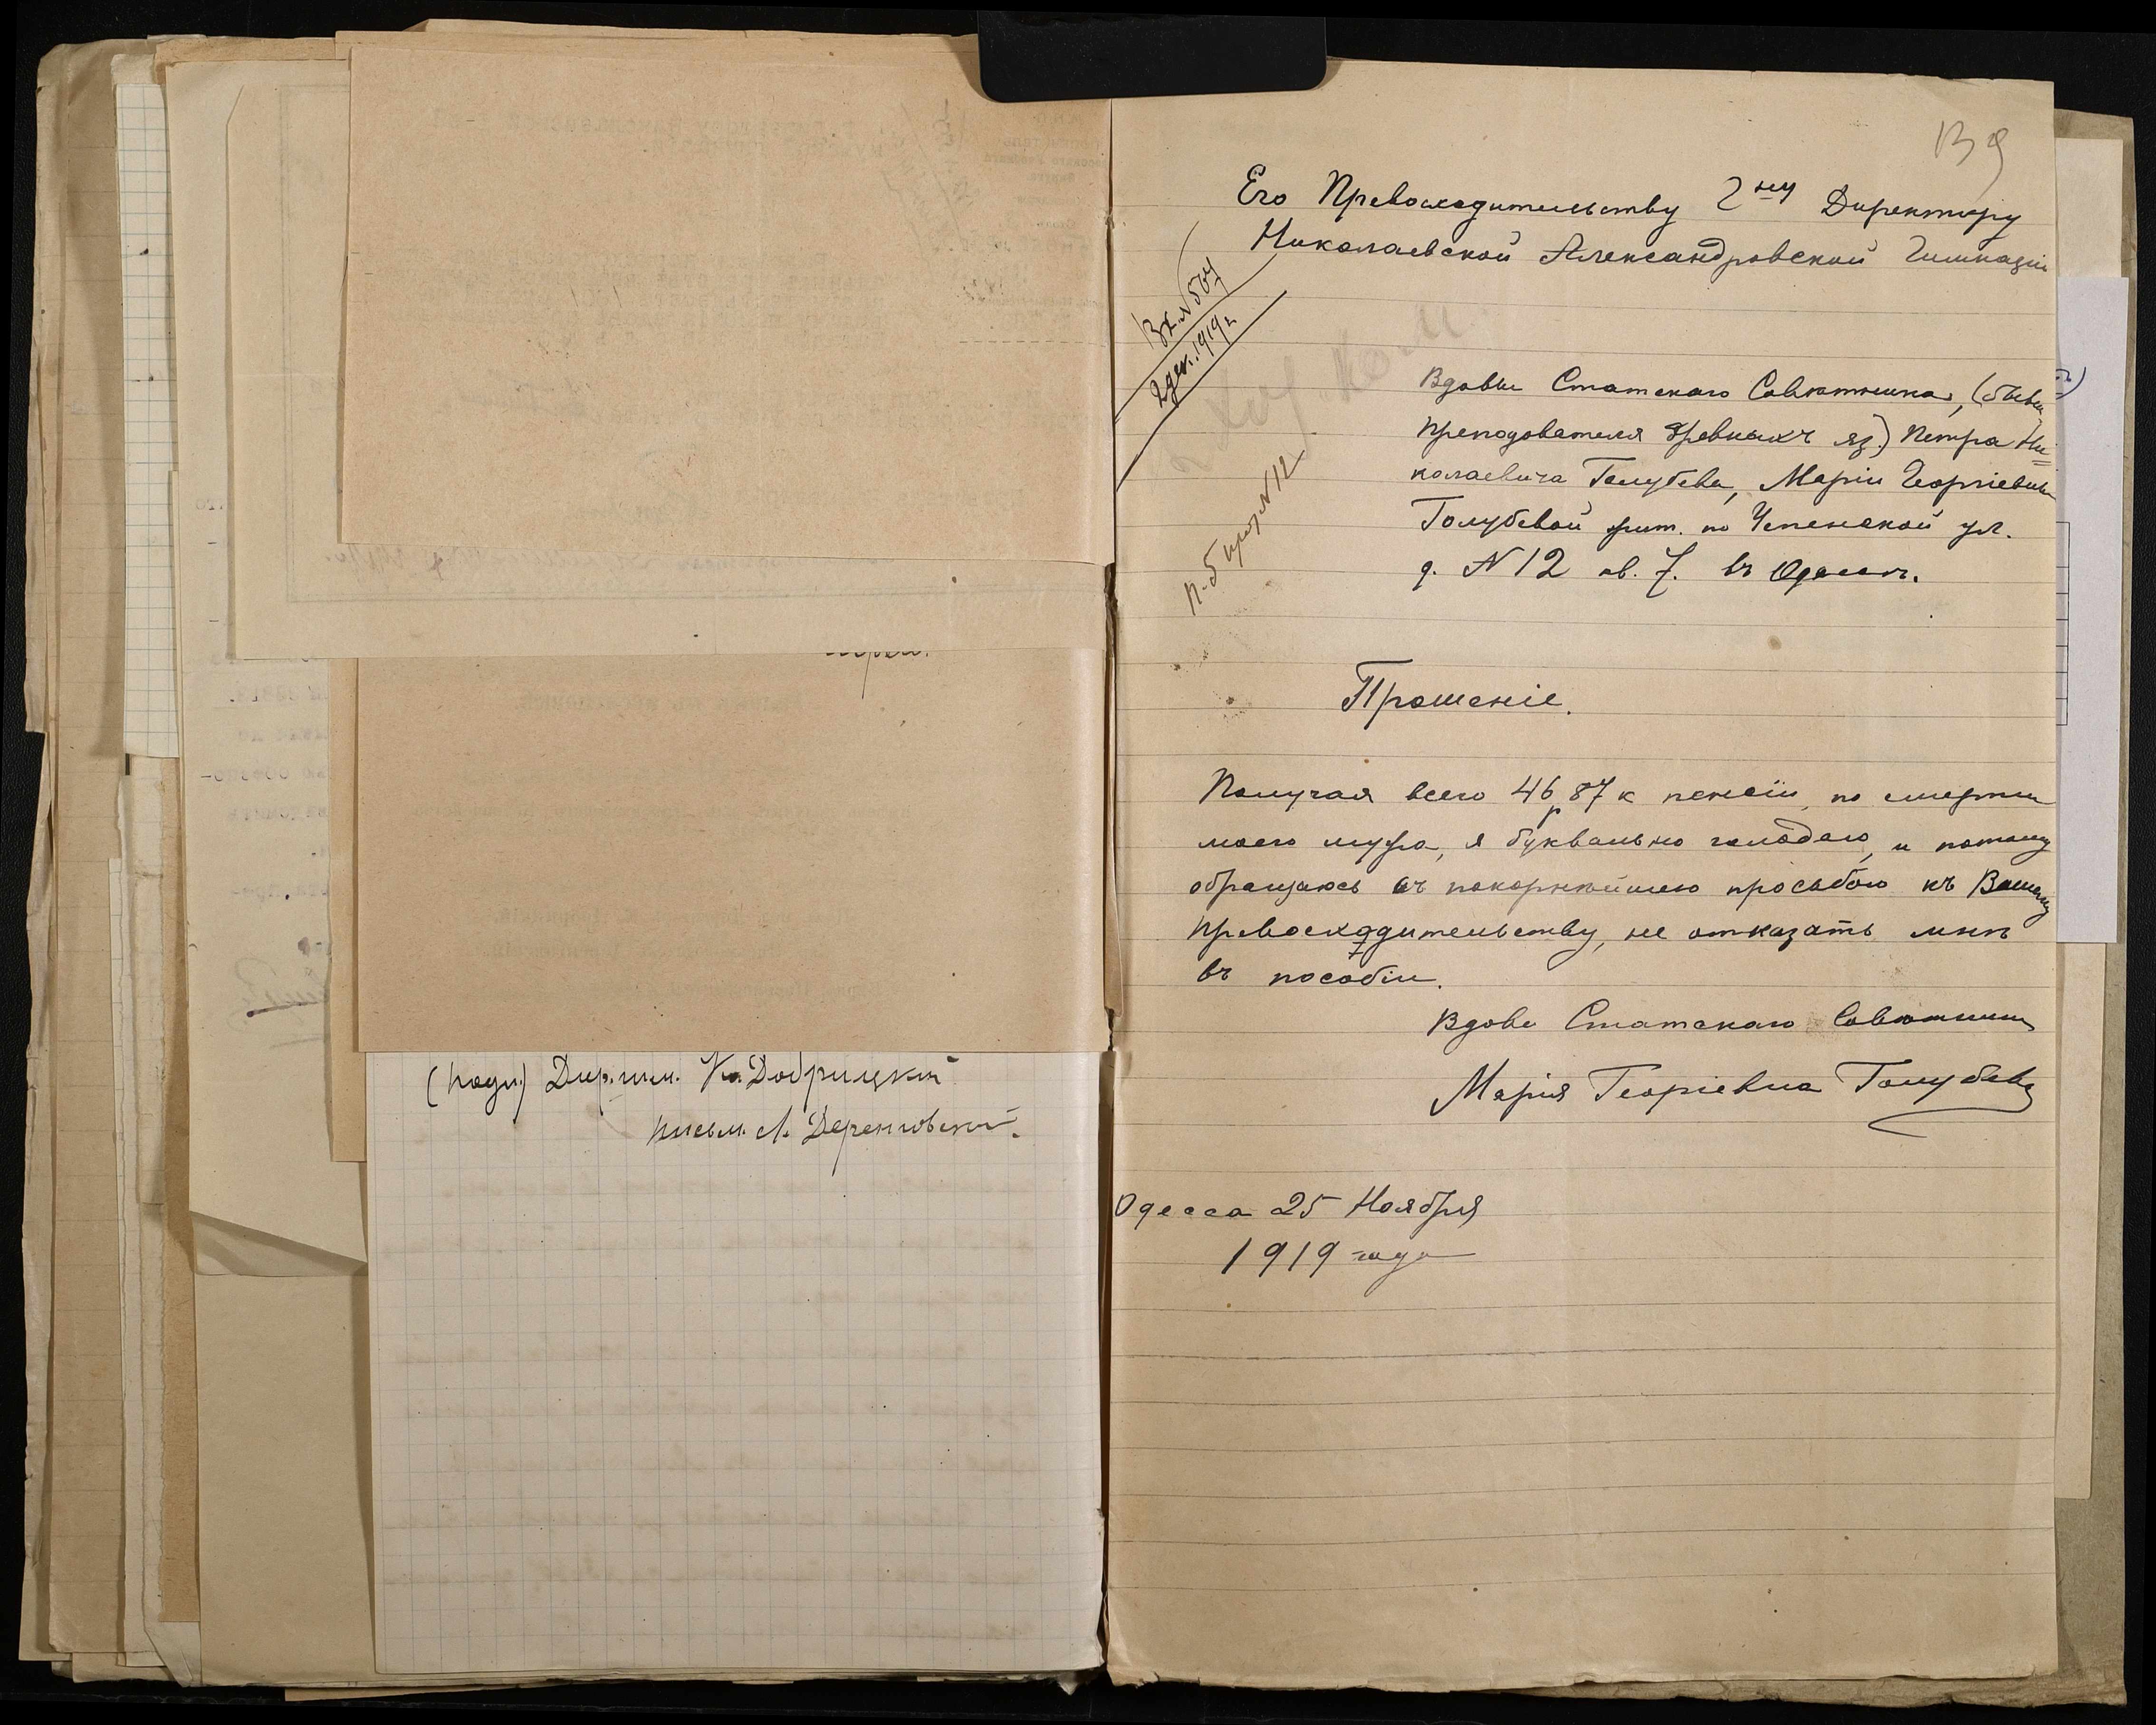 (подп.) Дир. гим. К. Добрицкий
письм. А. Деренговский.
139
Его Превосходительству Гну Директору
Николаевской Александровской Гимназіи
Вх. № 504
2 дек. 1919 г.
п. 5 прот. № 12
Вдовы Статскаго Совѣтника, (бывш
преподователя древнихъ яз.) Петра Ни=
колаевича Голубева, Маріи Георгіевны
Голубевой жит. по ул.
д. № 12 кв. 7. въ Одессѣ.
Прошеніе.
Получая всего 46 р 87 к пенсіи, по смерти
моего мужа, я буквально голодаю, и потому
обращаюсь съ покорнѣйшею просьбою къ Вашему
Превосходительству, не отказать мнѣ
въ пособіи.
Вдова Статскаго Совѣтника
Марія Георгіевна Голубева
Одесса 25 Ноября
1919 года